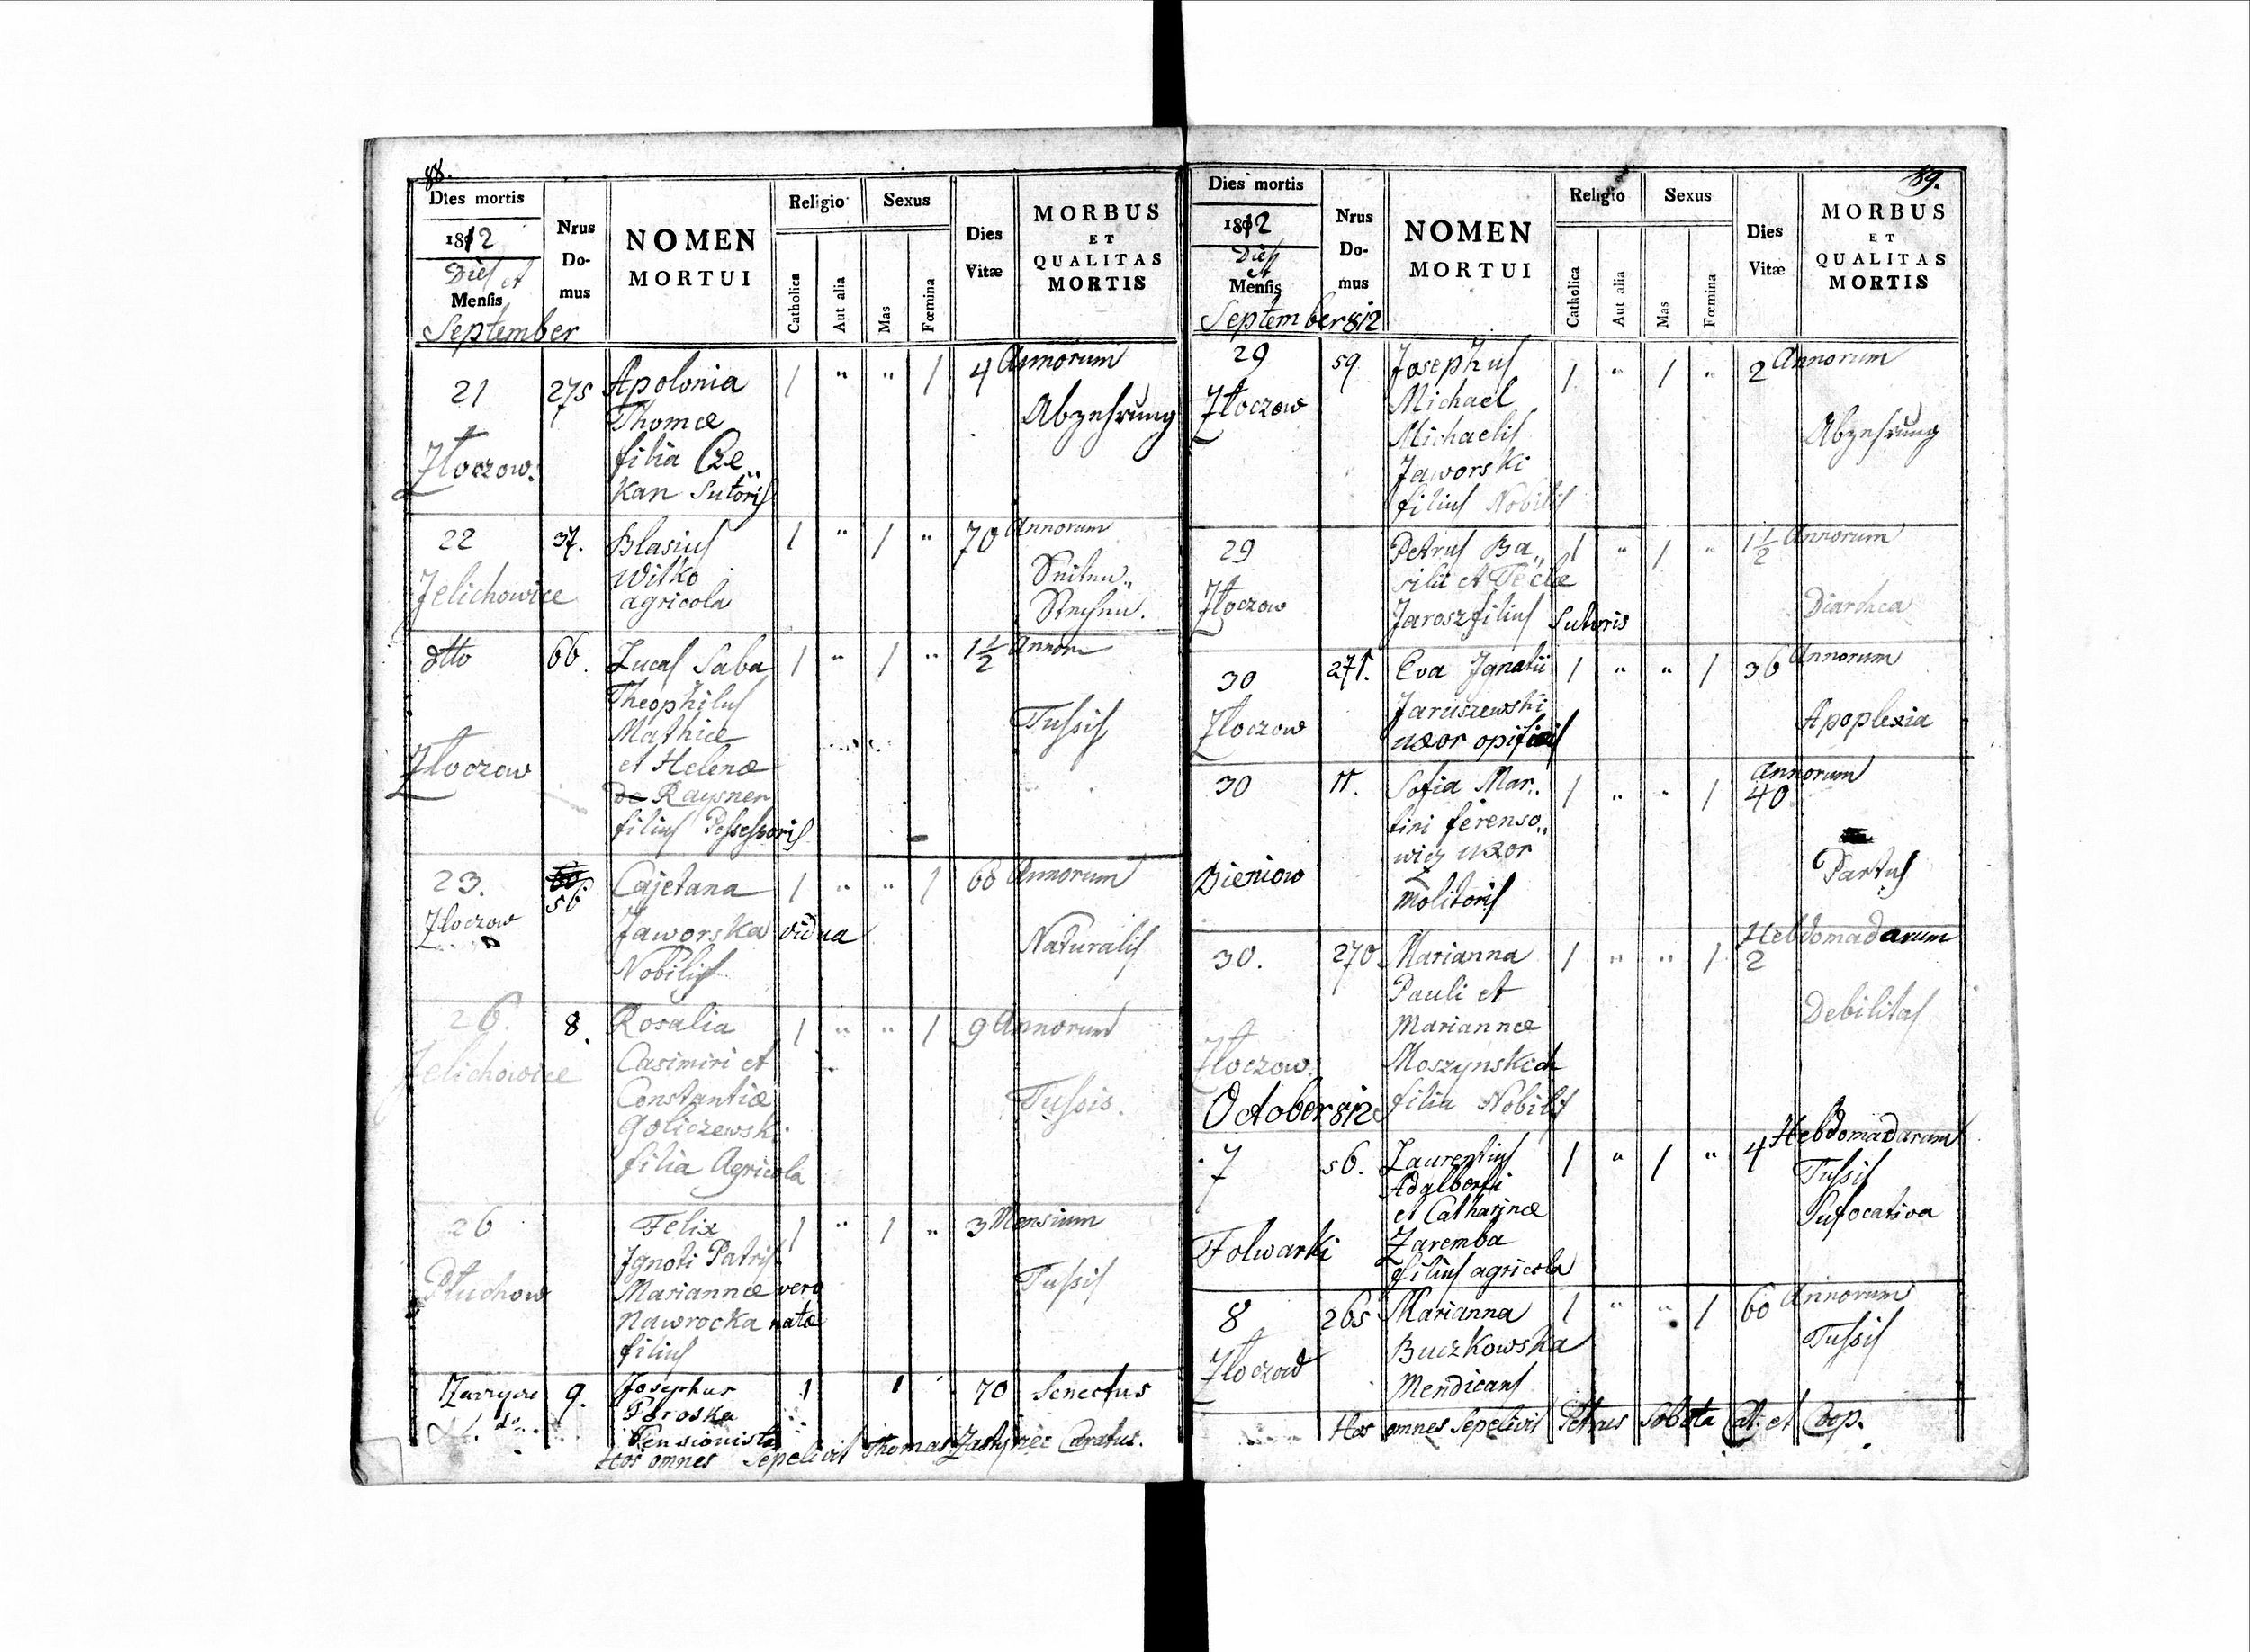 88.
Dies mortis
1812
Dies et
Mensis
September
Nrus
Do-
mus
NOMEN
MORTUI
Religio
Catholica
Aut alia
Sexus
Mas
Fœmina
Dies
Vitæ
MORBUS
ET
QUALITAS
MORTIS
21 275 Apolonia / " " / 4 Annorum
Thomæ Abzehrung
Złoczow. filia Cze„
kan Sutoris
22 37. Blasius / " / " 70 Annorum
Witko Seiten„
Jelichowice agricola Stechen.
dtto 66. Lucas Saba / " / " 1 1/2 Annor
Theophilus
Mathiæ Tussis
Złoczow et Helenæ
De Raysner
filius Possessoris
23. 56 Cajetana / " " / 60 Annorum
Złoczow Jaworska vidua Naturalis
Nobilis
26. 8. Rosalia / " " / 9 Annorum
Jelichowice Casimiri et
Constantiæ Tussis.
Goliczewski
filia Agricola
26 Felix / " / " 3 Mensium
Ignoti Patris
Płuchow Mariannæ vero Tussis
Nawrocka natæ
filius
9. Josephus 1 1 70 Senectus
Poroska
Pensionista
Hos omnes Sepelivit Thomas Curatus.
89.
Dies mortis
1812
Dies
et
Mensis
September 812
Nrus
Do-
mus
NOMEN
MORTUI
Religio
Catholica
Aut alia
Sexus
Mas
Fœmina
Dies
Vitæ
MORBUS
ET
QUALITAS
MORTIS
29 59 Josephus / " / " 2 Annorum
Złoczow Michael
Michaelis Abzehrung
Jaworski
filius Nobilis
29 Petrus Ba„ / " / " 1 1/2 Annorum
silii et Teclæ
Złoczow Jarosz filius Sutoris Diarhea
30 271. Eva Ignatii / " " / 36 Annorum
Złoczow Jaruszewski Apoplexia
uxor opificis
30 11. Sofia Mar„ / " " / Annorum
40
tini ferenso„
Bieniow wicz uxor Partus
Molitoris
30. 270 Marianna / " " / Hebdomadarum
2
Pauli et
Mariannæ Debilitas
Złoczow. Moszynskich
filia Nobilis
October 812
7 56. Laurentius / " / " 4 Hebdomadarum
Adalberti Tussis
et Catharinæ Sufocativa
Folwarki Zaremba
filius agricola
8 265 Marianna / " " / 60 Annorum
Złoczow Buczkowska Tussis
Mendicans
Hos omnes Sepelivit Petrus Sobota Cat: et Coop.